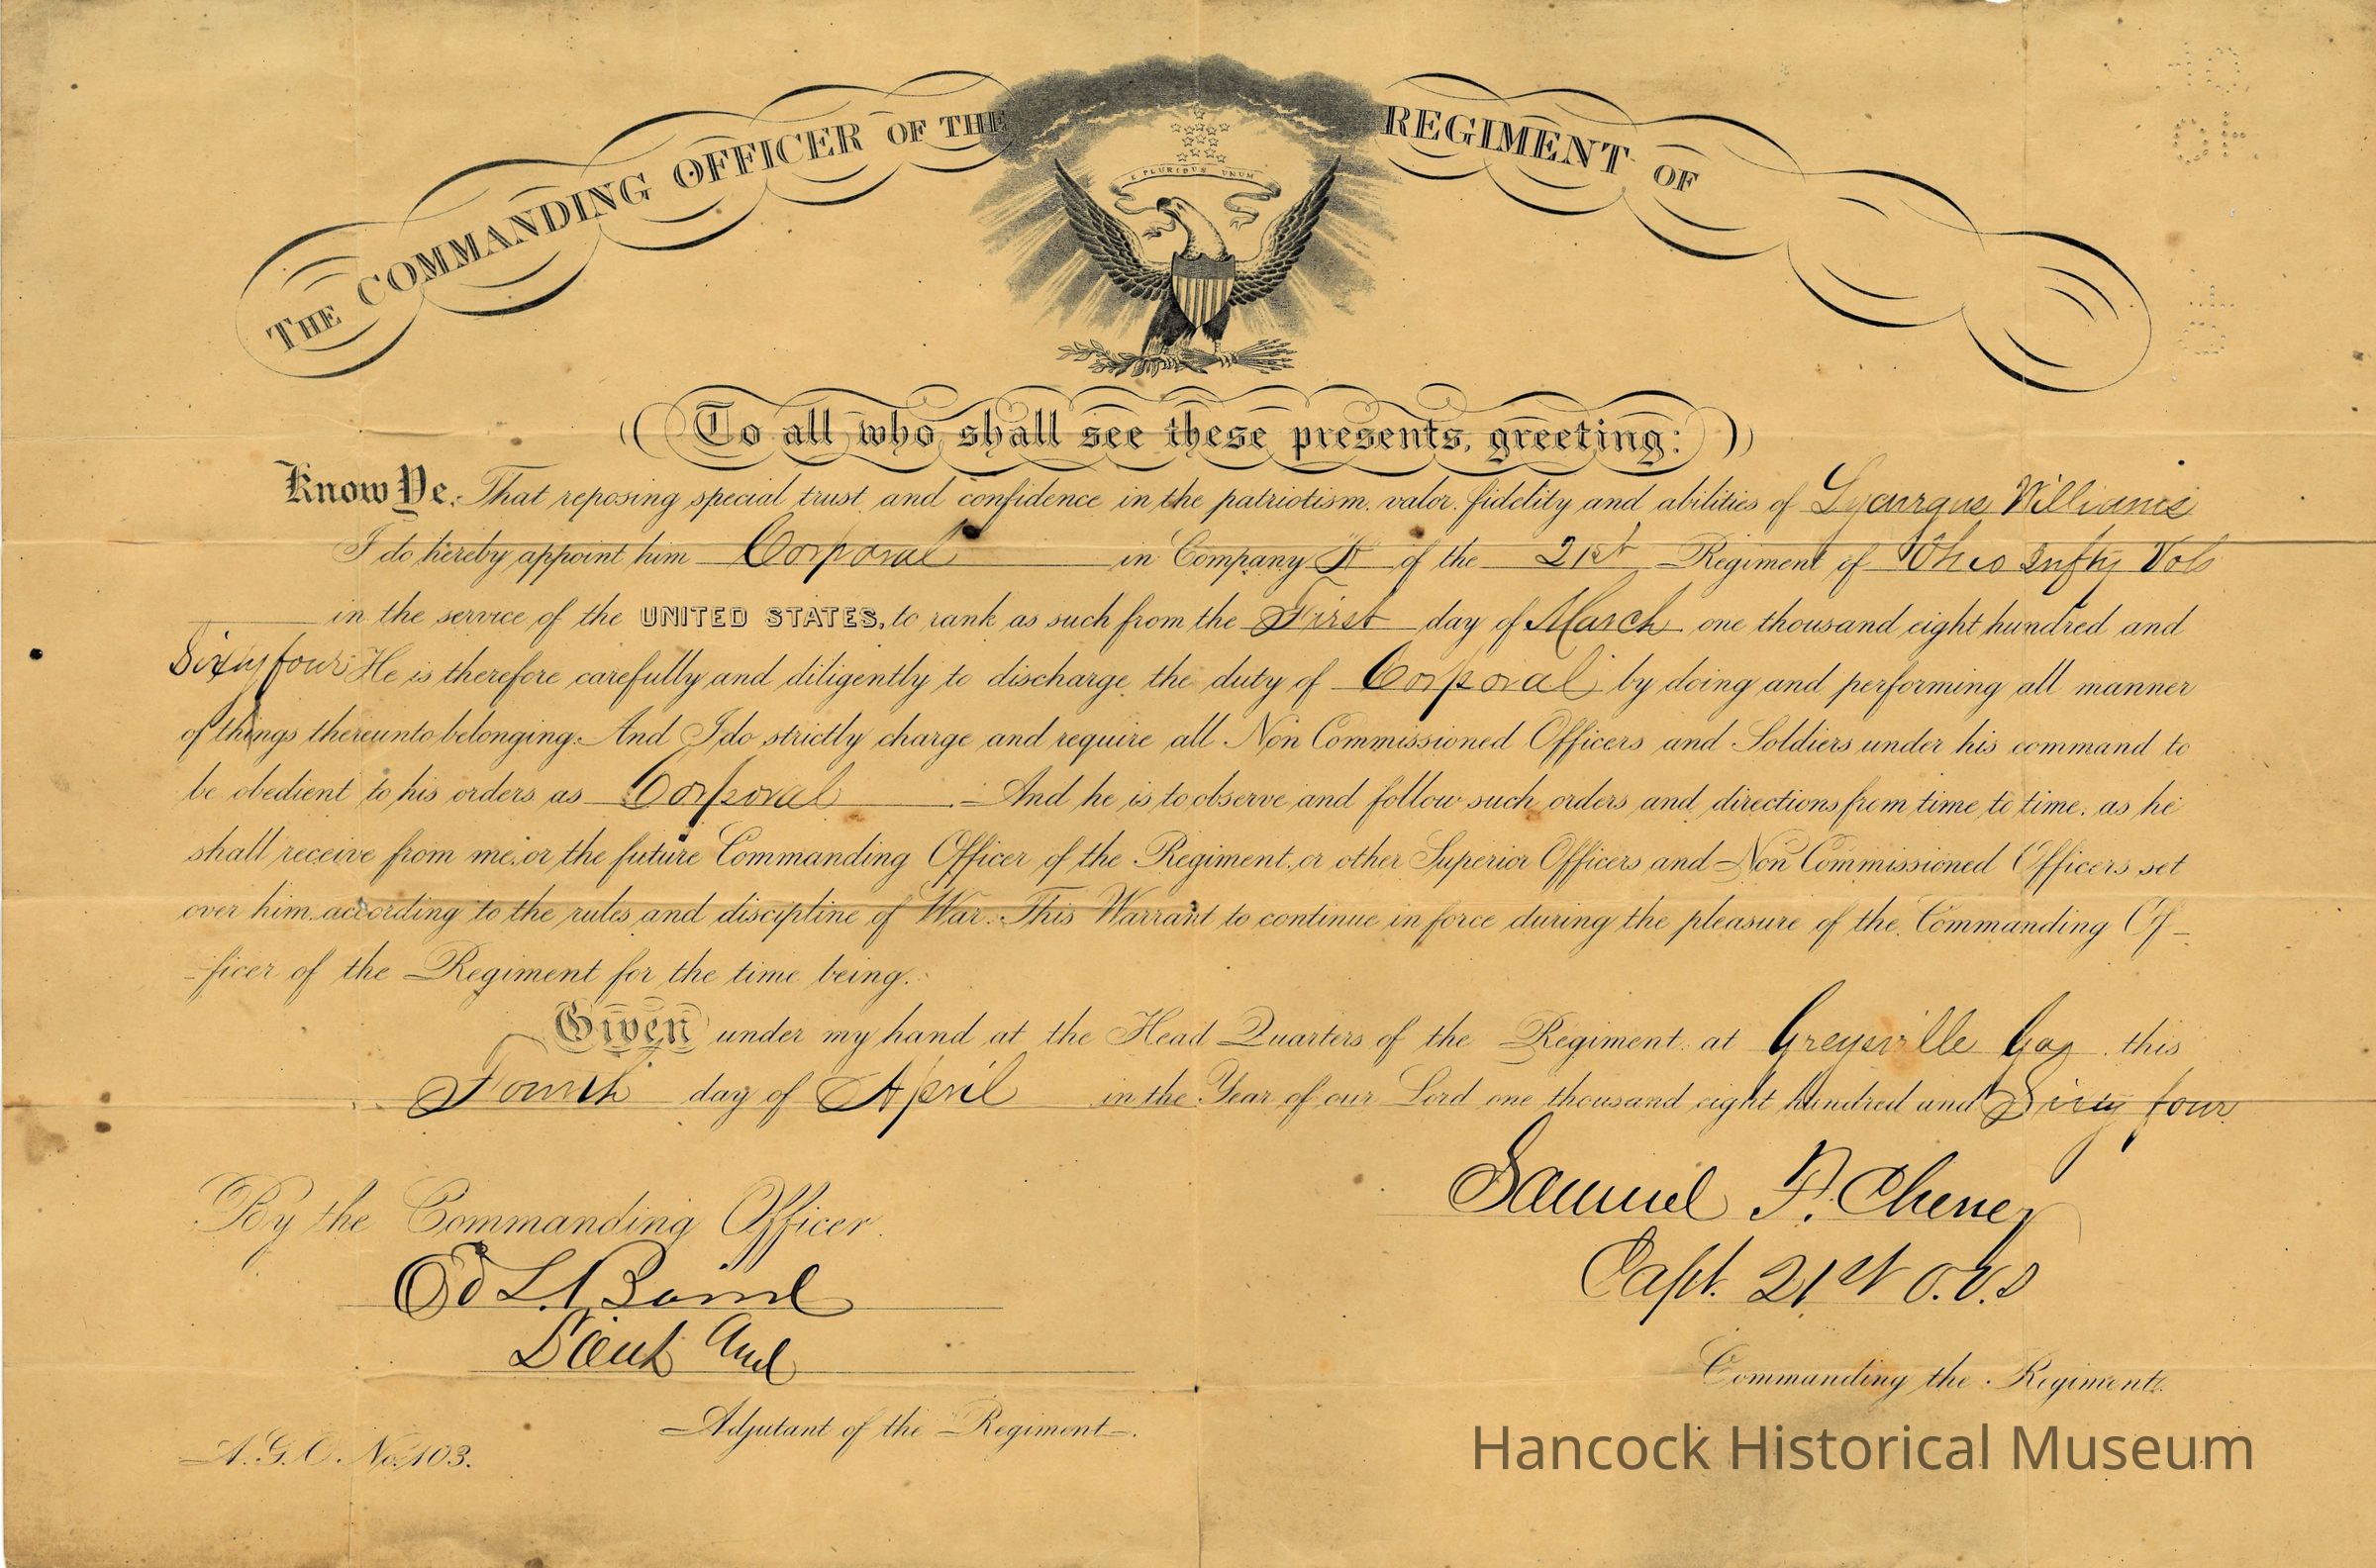 THE COMMANDING OFFICER OF THE REGIMENT OF
E PLURIBUS UNUM
To all who shall see these presents, greeting:
Know Ye: That reposing special trust and confidence in the patriotism, valor, fidelity and abilities of Lycurgus Williams
I do hereby appoint him Corporal in Company of the 21st Regiment of Ohio Infty Vols
in the service of the UNITED STATES, to rank as such from the First day of March one thousand eight hundred and
Sixty four He is therefore carefully and diligently to discharge the duty of Corporal by doing and performing all manner
of things thereunto belonging. And I do strictly charge and require all Non Commissioned Officers and Soldiers under his command to
be obedient to his orders as Corporal And he is to observe and follow such orders and directions from time to time, as he
shall receive from me, or the future Commanding Officer of the Regiment, or other Superior Officers and Non Commissioned Officers set
over him, according to the rules and discipline of War. This Warrant to continue in force during the pleasure of the Commanding Of-
-ficer of the Regiment for the time being.
Given under my hand at the Head Quarters of the Regiment at Greysville Ga, this
Fourth day of April in the Year of our Lord one thousand eight hundred and Sixty four
By the Commanding Officer.
Samuel F. Cheney
Ed L. Baird
Capt. 21st O.V.I
Lieut and
Commanding the Regiment.
Adjutant of the Regiment.
A.G.O. No. 103.
Hancock Historical Museum